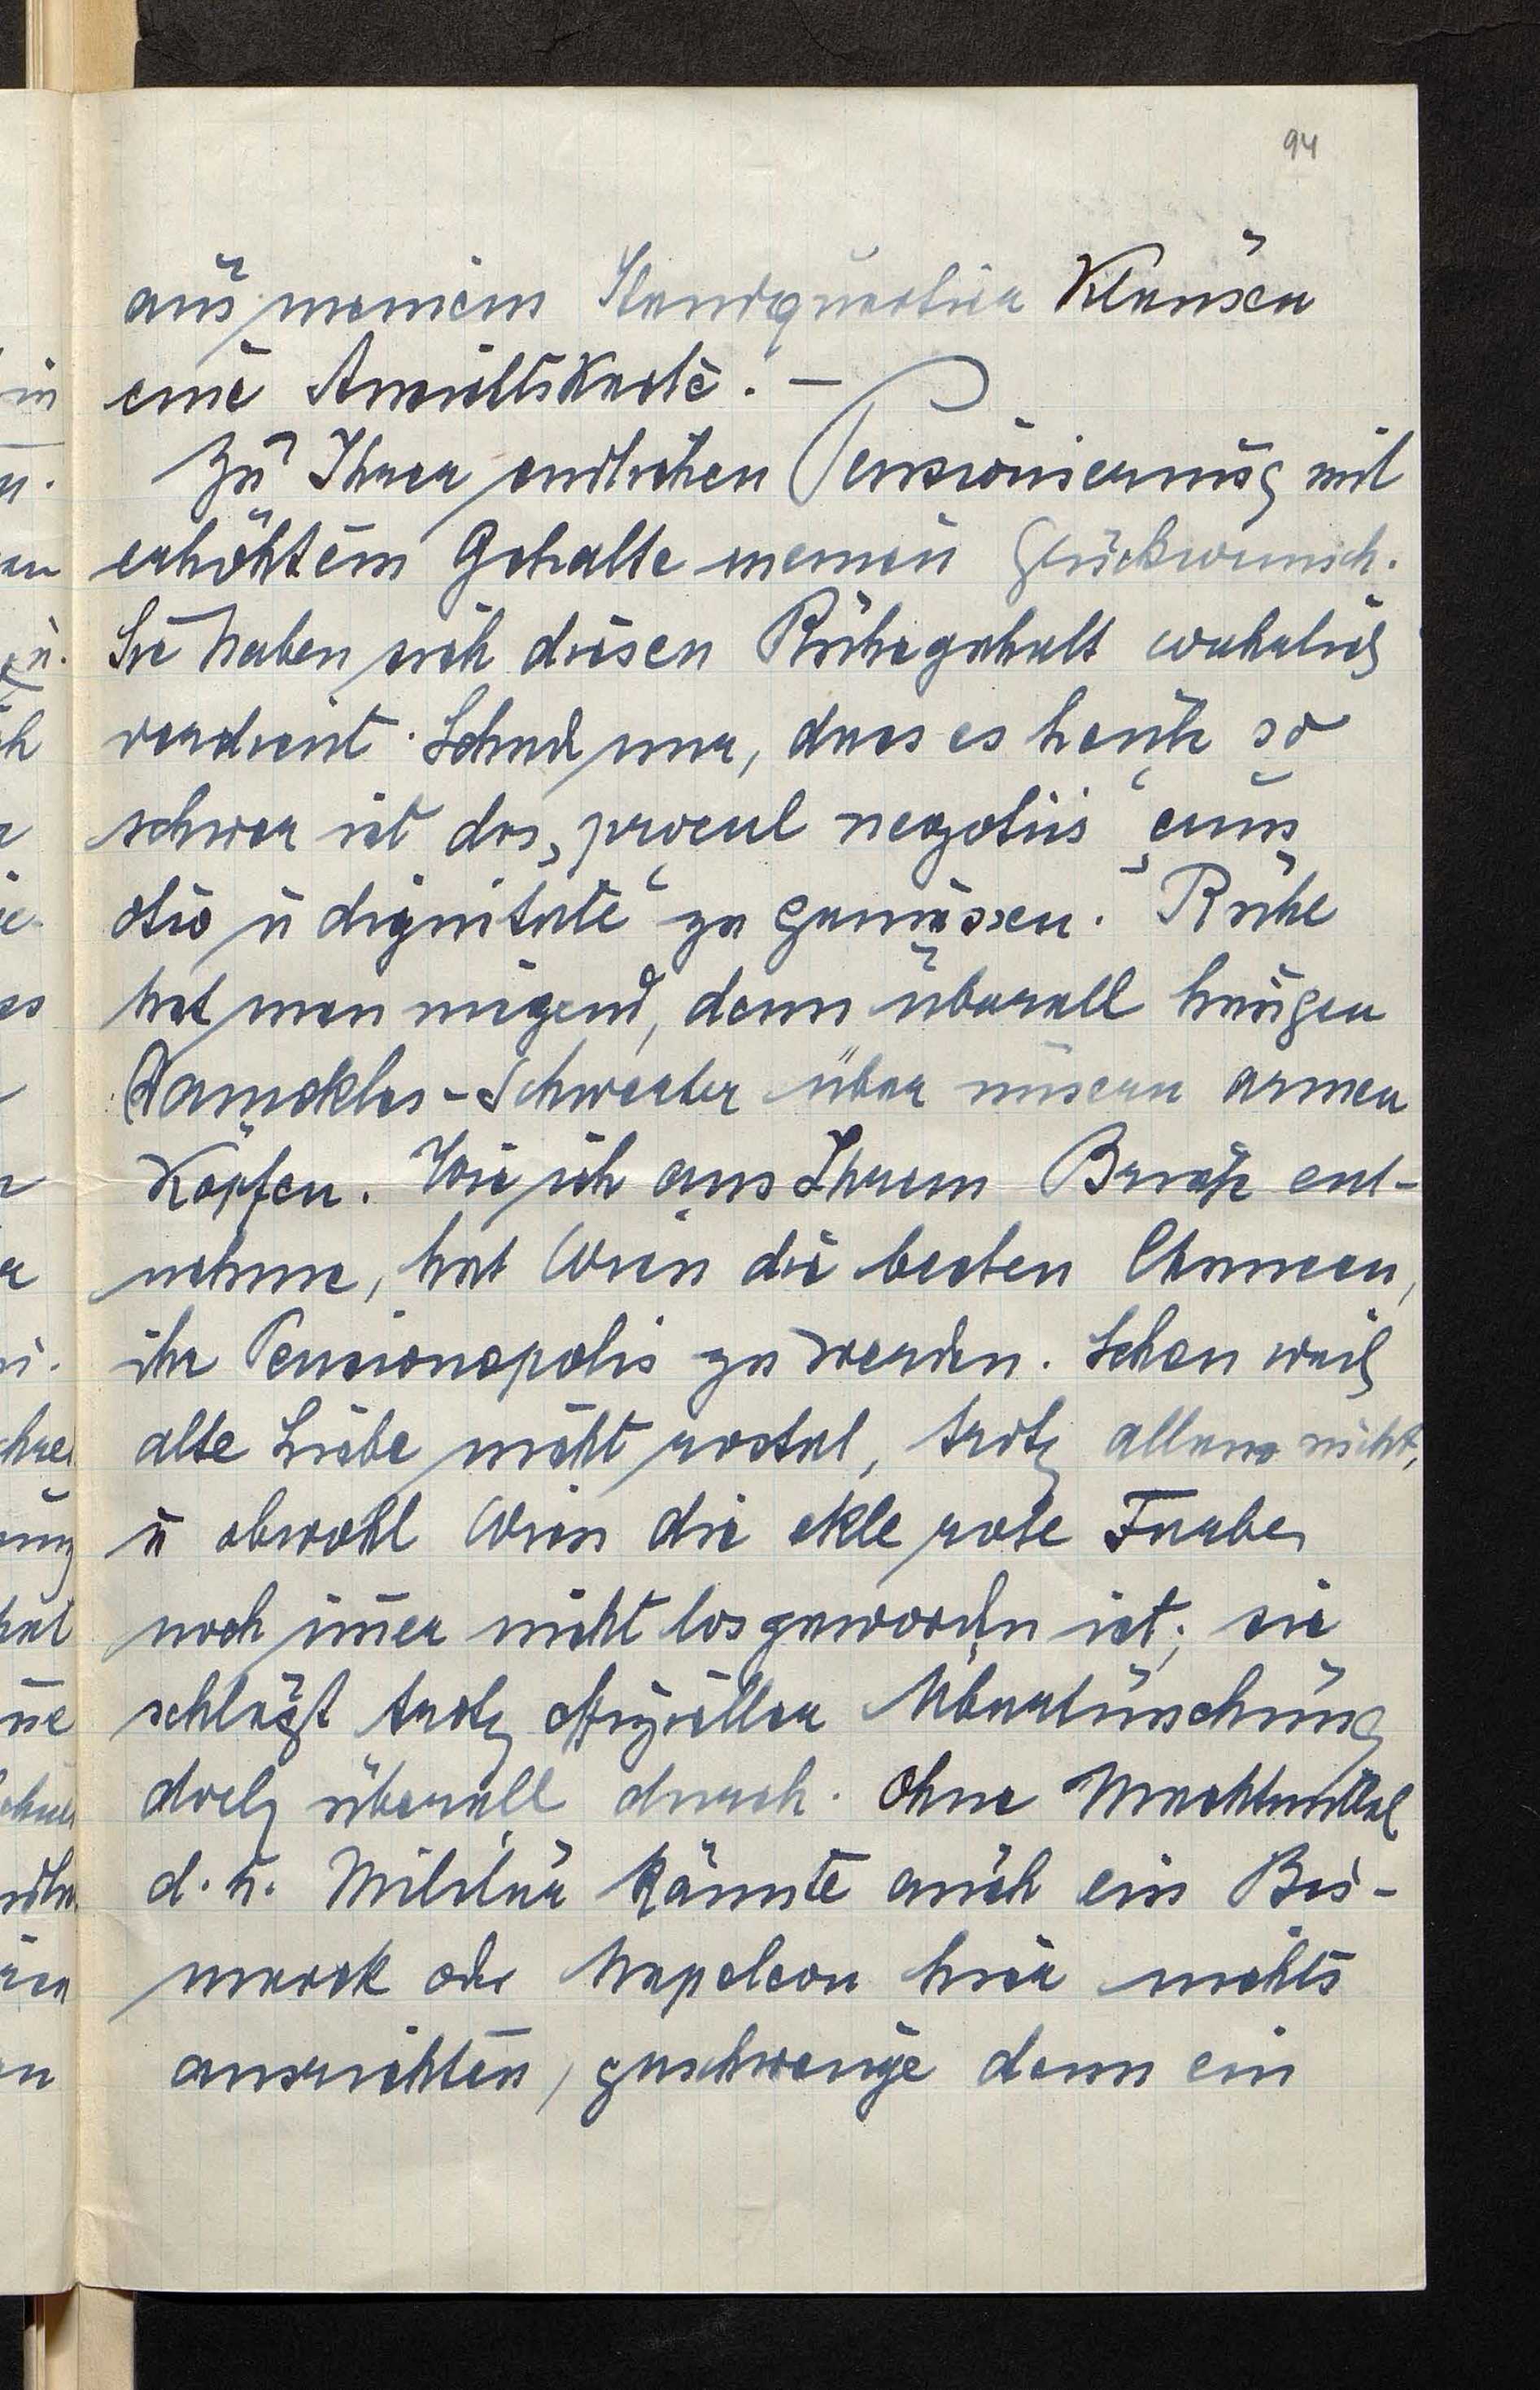 94
aus meinem Standquartier Klausen
eine Ansichtskarte. –
Zu Ihrer endlichen Pensionierung mit
erhöhtem Gehalte meinen Glückwunsch.
Sie haben sich diesen Ruhegehalt wahrlich
verdient. Schad nur, dass es heute so
schwer ist das „procul negotiis“ „cum
otio u dignitate“ zu geniessen. Ruhe
hat man nirgend, denn überall hängen
Damokles-Schwerter über unseren armen
Köpfen. Wie ich aus Ihrem Briefe ent-
nehme, hat Wien die besten Chancen,
ihr Pensionopolis zu werden. Schon weil
alte Liebe nicht rostet, trotz allem nicht,
u obwohl Wien die ekle rote Farbe
noch im̅er nicht losgeworden ist; sie
schlägt trotz offizieller Übertünchung
doch überall durch. Ohne Machtmittel
d. h. Militär könnte auch ein Bis-
marck oder Napoleon hier nichts
ausrichten, geschweige denn ein